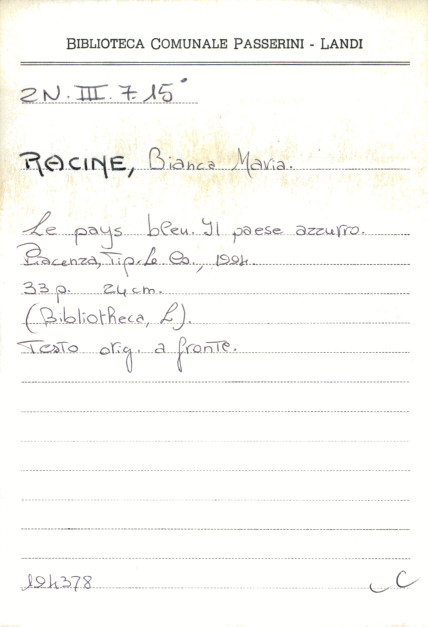 BIBLIOTECA COMUNALE PASSERINI - LANDI
2N. III. 7.15°
RACINE, Bianca Maria.
Le pays bleu. Il paese azzurro.
Piacenza, Tip. Le Co., 1994.
33 p. 24 cm.
(Bibliotheca, L).
Testo orig. a fronte.
194378
C